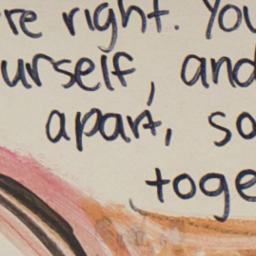 re right. You
urself, and
apart, so
toge